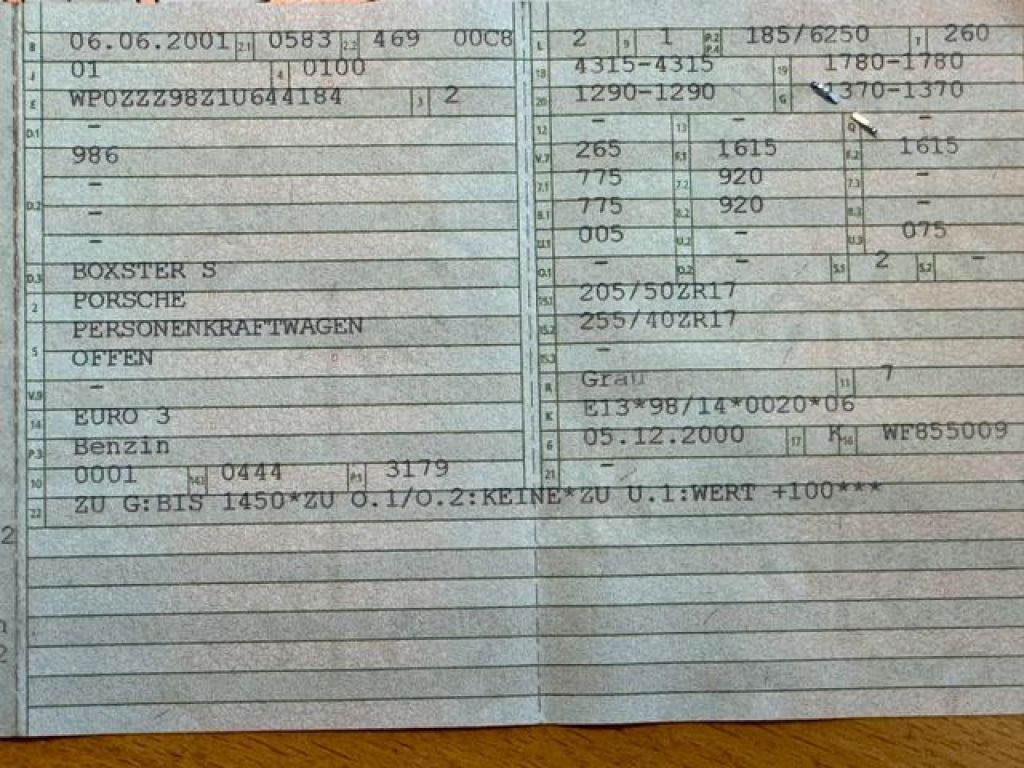 B 06.06.2001 2.1 0583 2.2 469 00C8 L 2 9 1 P.2 P.4 185/6250 T 260
J 01 4 0100 18 4315-4315 19 1780-1780
E WP0ZZZ98Z1U644184 3 2 20 1290-1290 G 370-1370
D.1 - 12 - 13 - Q -
986 V.7 265 F.1 1615 F.2 1615
D.2 - 7.1 775 7.2 920 7.3 -
- 8.1 775 8.2 920 8.3 -
- U.1 005 U.2 - U.3 075
D.3 BOXSTER S O.1 - O.2 - S.1 2 S.2 -
2 PORSCHE 15.1 205/50ZR17
PERSONENKRAFTWAGEN 15.2 255/40ZR17
5 OFFEN 15.3 -
V.9 - R Grau 11 7
14 EURO 3 K E13*98/14*0020*06
P.3 Benzin 6 05.12.2000 17 K 16 WF855009
10 0001 14.1 0444 P.1 3179 21 -
22 ZU G:BIS 1450*ZU O.1/O.2:KEINE*ZU U.1:WERT +100***
2
2